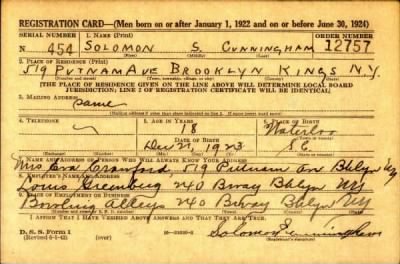 REGISTRATION CARD—(Men born on or after January 1, 1922 and on or before June 30, 1924)
SERIAL NUMBER 1. NAME (Print) ORDER NUMBER
N 454 SOLOMON S. CUNNINGHAM 12757
2. PLACE OF RESIDENCE (Print)
519 PUTNAM AVE BROOKLYN KINGS N.Y.
[THE PLACE OF RESIDENCE GIVEN ON THE LINE ABOVE WILL DETERMINE LOCAL BOARD
JURISDICTION; LINE 2 OF REGISTRATION CERTIFICATE WILL BE IDENTICAL]
3. MAILING ADDRESS
same
4. TELEPHONE 5. AGE IN YEARS 6. PLACE OF BIRTH
18 Waterloo
DATE OF BIRTH
Dec 21, 1923 S.C.
Mrs Eva Crawford, 519 Putnam Av Bklyn Ny
7. NAME AND ADDRESS OF PERSON WHO WILL ALWAYS KNOW YOUR ADDRESS
Louis Greenburg 240 Bway Bklyn NY
8. EMPLOYER'S NAME AND ADDRESS
9. PLACE OF EMPLOYMENT OR BUSINESS
Bowling Alleys 240 Bway Bklyn NY
I AFFIRM THAT I HAVE VERIFIED ABOVE ANSWERS AND THAT THEY ARE TRUE.
D. S. S. Form 1
Solomon Cunningham